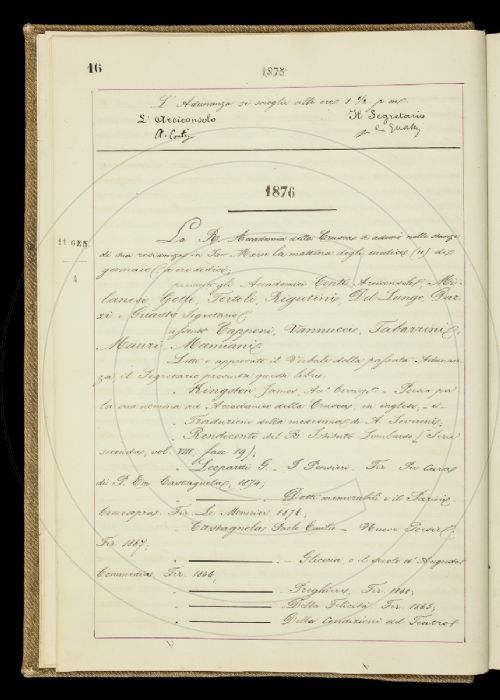 16
1875
L'Adunanza si scioglie alle ore 1 ½ p m.
L'Arciconsolo
Il Segretario
A. Conti
1876
11 GEN
La R. Accademia della Crusca si adunò nelle stanze
di sua residenza in San Marco la mattina degli undici (11) di
gennaio
presenti gli Accademici Conti Arciconsolo, Mi-
lanesi, Gotti, Tortoli, Rigutini, Del Lungo, Daz-
zi e Guasti Segretario;
assenti Capponi, Vannucci, Tabarrini,
Mauri, Mamiani.
Letto e approvato il Verbale della passata Adunan-
za, il Segretario presenta questi libri.
Kingston James, Poesia per
la sua nomina ad Accademico della Crusca, in inglese, e
Traduzione della medesima di A.
Rendiconti del R. Istituto Lombardo (Serie
seconda, vol. VIII, fasc 19);
Leopardi G. I Pensieri. Fir. Per cura
di P. Em. Castagnola, 1874;
Detti memorabili
Fir. Le Monnier 1876,
Castagnola Paolo Emilio Nuove Poesie,
Fir. 1867;
Gliceria, o il fuoco d'Augusto
Commedia, Fir. 1866,
Preghiere, Fir.
Della Felicità Fir. 1865,
Delle Condizioni del Teatro